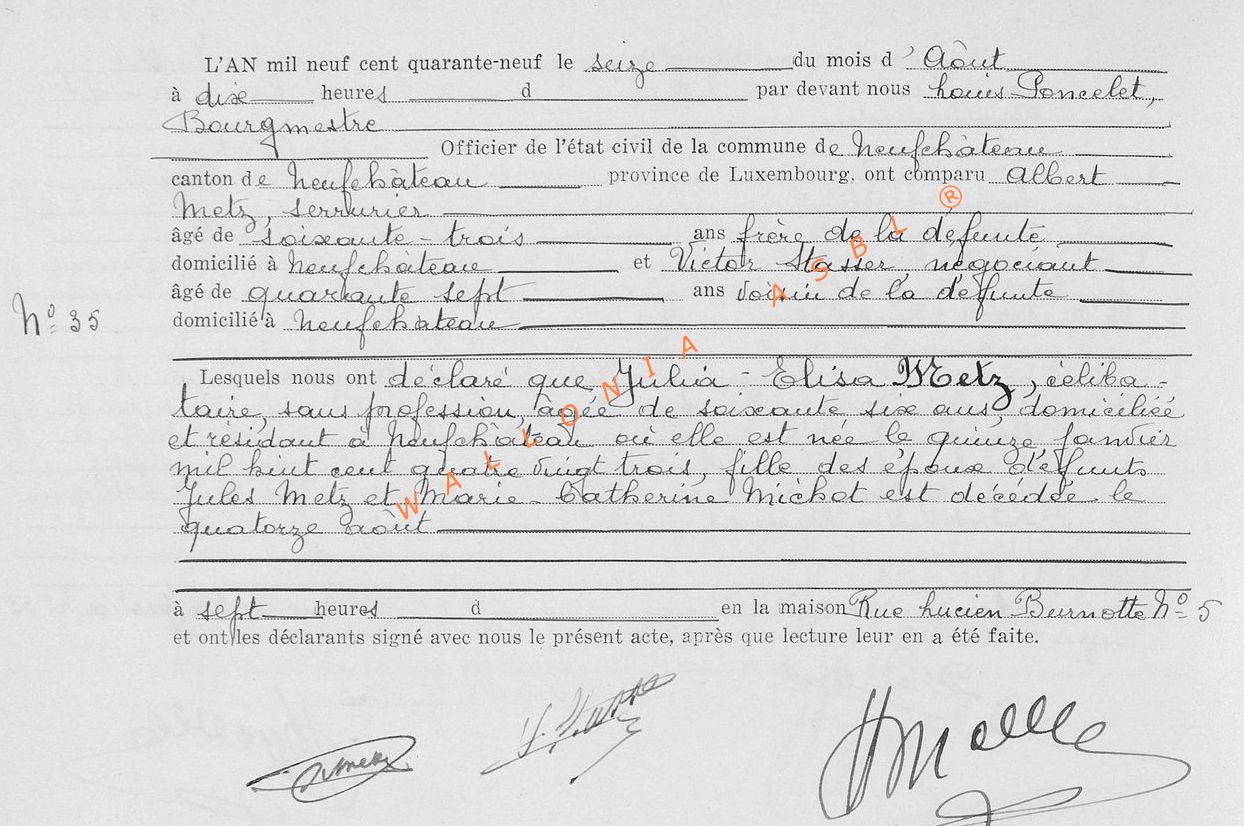 L'AN mil neuf cent quarante-neuf le seize du mois d'Août
à dix heures d par devant nous Louis Poncelet,
Bourgmestre
Officier de l'état civil de la commune de Neufchâteau
canton de Neufchâteau province de Luxembourg, ont comparu Albert
Metz, serrurier
âgé de soixante-trois ans frère de la défunte
domicilié à Neufchâteau et Victor Stasser, négociant
âgé de quarante sept ans voisin de la défunte
N° 35 domicilié à Neufchâteau
Lesquels nous ont déclaré que Julia-Elisa Metz, céliba-
taire, sans profession, âgée de soixante six ans, domiciliée
et résidant à Neufchâteau où elle est née le quinze Janvier
mil huit cent quatre vingt trois, fille des époux défunts
Jules Metz et Marie-Catherine Michot est décédée le
quatorze août
à sept heures d en la maison Rue Lucien Burnotte N° 5
et ont les déclarants signé avec nous le présent acte, après que lecture leur en a été faite.
WALLONIA ASBL ®